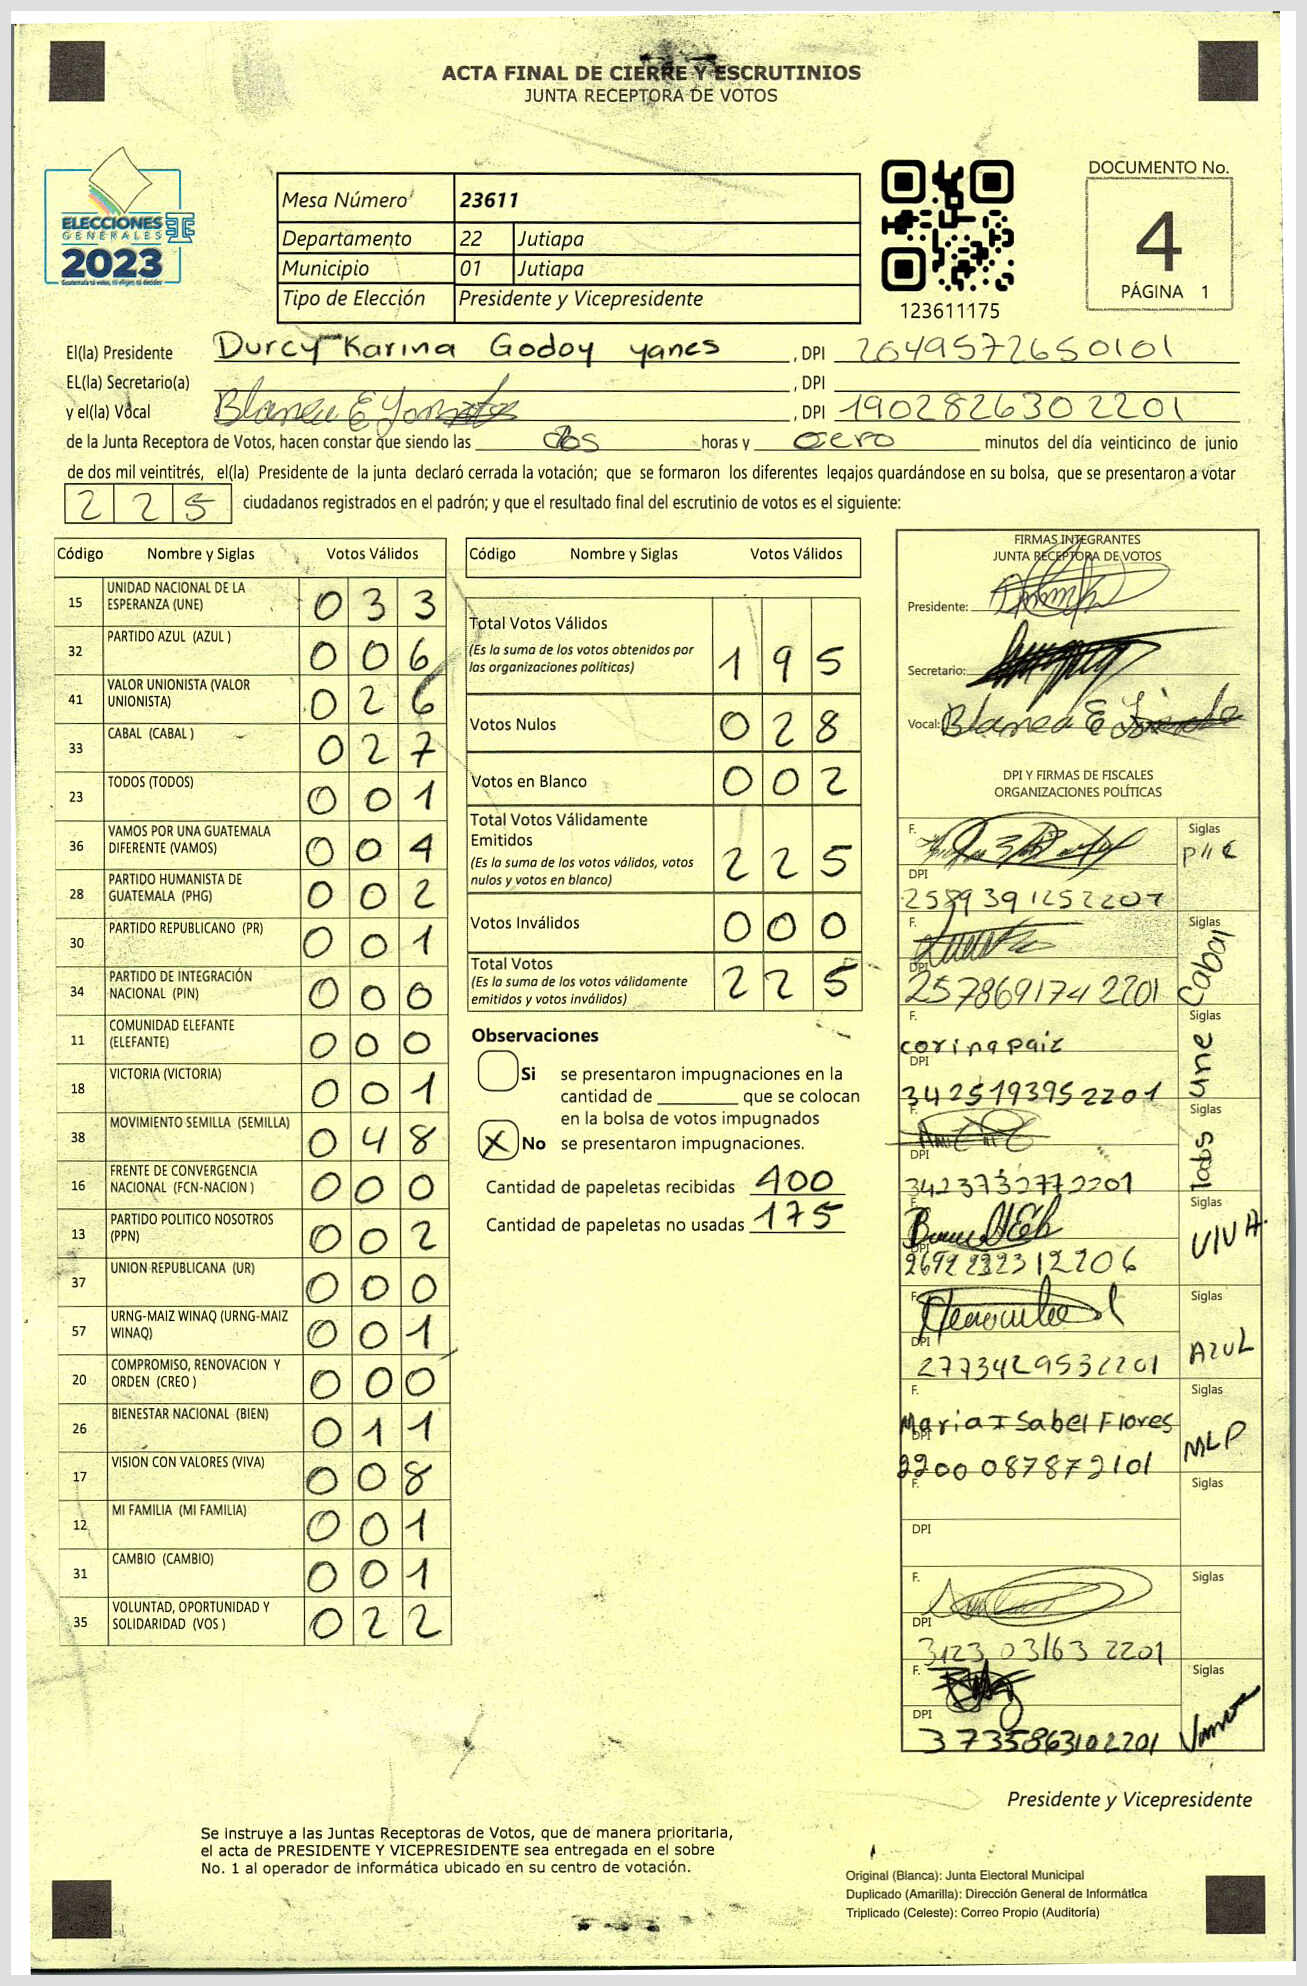 ACTA FINAL DE CIERRE Y ESCRUTINIOS
JUNTA RECEPTORA DE VOTOS
ELECCIONES
GENERALES
2023
Mesa Número 23611
Departamento 22 Jutiapa
Municipio 01 Jutiapa
Tipo de Elección Presidente y Vicepresidente
123611175
DOCUMENTO No.
4
PÁGINA 1
El(la) Presidente Durcy Karina Godoy yanes , DPI 2649572650101
EL(la) Secretario(a) , DPI
y el(la) Vocal Blanca E , DPI 1902826302201
de la Junta Receptora de Votos, hacen constar que siendo las dos horas y cero minutos del día veinticinco de junio
de dos mil veintitrés, el(la) Presidente de la junta declaró cerrada la votación; que se formaron los diferentes legajos quardándose en su bolsa, que se presentaron a votar
225 ciudadanos registrados en el padrón; y que el resultado final del escrutinio de votos es el siguiente:
Código Nombre y Siglas Votos Válidos
15 UNIDAD NACIONAL DE LA ESPERANZA (UNE) 033
32 PARTIDO AZUL (AZUL ) 006
41 VALOR UNIONISTA (VALOR UNIONISTA) 026
33 CABAL (CABAL ) 027
23 TODOS (TODOS) 001
36 VAMOS POR UNA GUATEMALA DIFERENTE (VAMOS) 004
28 PARTIDO HUMANISTA DE GUATEMALA (PHG) 002
30 PARTIDO REPUBLICANO (PR) 001
34 PARTIDO DE INTEGRACIÓN NACIONAL (PIN) 000
11 COMUNIDAD ELEFANTE (ELEFANTE) 000
18 VICTORIA (VICTORIA) 001
38 MOVIMIENTO SEMILLA (SEMILLA) 048
16 FRENTE DE CONVERGENCIA NACIONAL (FCN-NACION ) 000
13 PARTIDO POLITICO NOSOTROS (PPN) 002
37 UNION REPUBLICANA (UR) 000
57 URNG-MAIZ WINAQ (URNG-MAIZ WINAQ) 001
20 COMPROMISO, RENOVACION Y ORDEN (CREO ) 000
26 BIENESTAR NACIONAL (BIEN) 011
17 VISION CON VALORES (VIVA) 008
12 MI FAMILIA (MI FAMILIA) 001
31 CAMBIO (CAMBIO) 001
35 VOLUNTAD, OPORTUNIDAD Y SOLIDARIDAD (VOS ) 022
Código Nombre y Siglas Votos Válidos
Total Votos Válidos 195
(Es la suma de los votos obtenidos por
las organizaciones políticas)
Votos Nulos 028
Votos en Blanco 002
Total Votos Válidamente
Emitidos 225
(Es la suma de los votos válidos, votos
nulos y votos en blanco)
Votos Inválidos 000
Total Votos 225
(Es la suma de los votos válidamente
emitidos y votos inválidos)
Observaciones
Si se presentaron impugnaciones en la
cantidad de ________ que se colocan
en la bolsa de votos impugnados
X No se presentaron impugnaciones.
Cantidad de papeletas recibidas 400
Cantidad de papeletas no usadas 175
FIRMAS INTEGRANTES
JUNTA RECEPTORA DE VOTOS
Presidente:
Secretario:
Vocal: Blanca E
DPI Y FIRMAS DE FISCALES
ORGANIZACIONES POLÍTICAS
F. Siglas
DPI
2589391252207
F. Siglas Cabal
DPI
2578691742201
F. Siglas une
corina paiz
DPI
3425193952201
F. Siglas
DPI
3423732772201
F. Siglas VIVA
DPI
2692282312206
F. Siglas AZUL
DPI
2773429532201
F. Siglas MLP
Maria Isabel Flores
DPI
2200087872101
F. Siglas
DPI
F. Siglas
DPI
3123031632201
F. Siglas
DPI
3735863102201
Presidente y Vicepresidente
Se instruye a las Juntas Receptoras de Votos, que de manera prioritaria,
el acta de PRESIDENTE Y VICEPRESIDENTE sea entregada en el sobre
No. 1 al operador de informática ubicado en su centro de votación.
Original (Blanca): Junta Electoral Municipal
Duplicado (Amarilla): Dirección General de Informática
Triplicado (Celeste): Correo Propio (Auditoría)